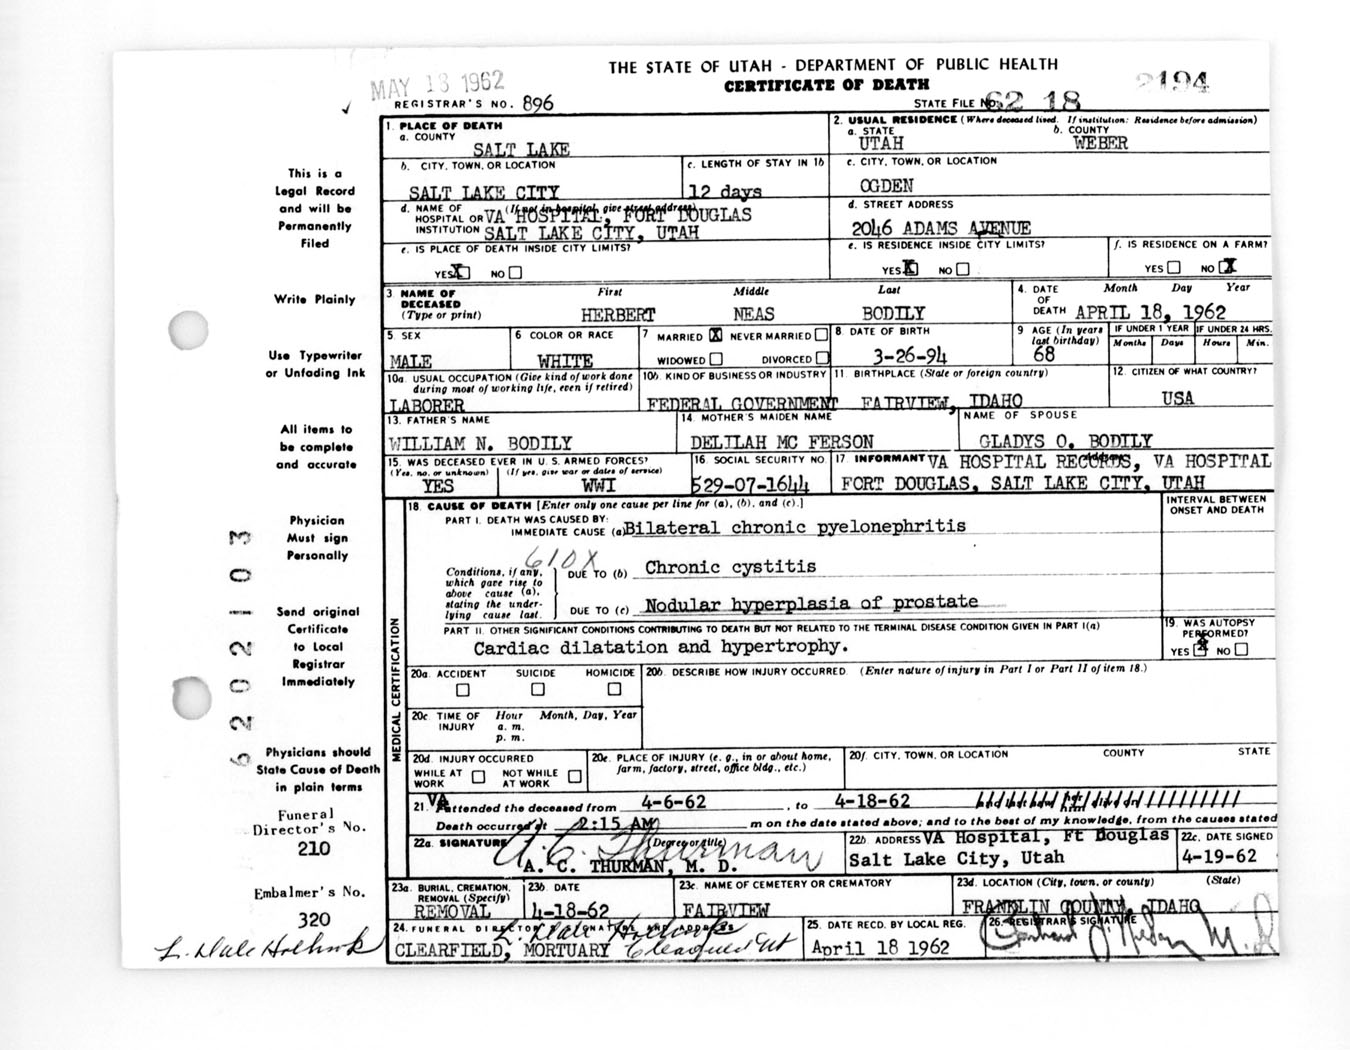 THE STATE OF UTAH - DEPARTMENT OF PUBLIC HEALTH
MAY 18 1962
CERTIFICATE OF DEATH
2194
REGISTRAR'S NO. 896
STATE FILE NO. 62 18
1. PLACE OF DEATH
a. COUNTY
SALT LAKE
2. USUAL RESIDENCE (Where deceased lived. If institution: Residence before admission)
a. STATE b. COUNTY
UTAH WEBER
b. CITY, TOWN, OR LOCATION c. LENGTH OF STAY IN 1b
SALT LAKE CITY 12 days
c. CITY, TOWN, OR LOCATION
OGDEN
d. NAME OF HOSPITAL OR INSTITUTION (If not in hospital, give street address)
VA HOSPITAL, FORT DOUGLAS
SALT LAKE CITY, UTAH
d. STREET ADDRESS
2046 ADAMS AVENUE
e. IS PLACE OF DEATH INSIDE CITY LIMITS?
YES X NO
e. IS RESIDENCE INSIDE CITY LIMITS?
YES X NO
f. IS RESIDENCE ON A FARM?
YES NO X
3. NAME OF DECEASED (Type or print) First Middle Last
HERBERT NEAS BODILY
4. DATE OF DEATH Month Day Year
APRIL 18, 1962
5. SEX 6. COLOR OR RACE 7. MARRIED X NEVER MARRIED
WIDOWED DIVORCED
MALE WHITE
8. DATE OF BIRTH
3-26-94
9. AGE (In years last birthday)
68
IF UNDER 1 YEAR IF UNDER 24 HRS.
Months Days Hours Min.
10a. USUAL OCCUPATION (Give kind of work done during most of working life, even if retired)
LABORER
10b. KIND OF BUSINESS OR INDUSTRY
FEDERAL GOVERNMENT
11. BIRTHPLACE (State or foreign country)
FAIRVIEW, IDAHO
12. CITIZEN OF WHAT COUNTRY?
USA
13. FATHER'S NAME
WILLIAM N. BODILY
14. MOTHER'S MAIDEN NAME
DELILAH MC FERSON
NAME OF SPOUSE
GLADYS O. BODILY
15. WAS DECEASED EVER IN U. S. ARMED FORCES?
(Yes, no, or unknown) (If yes, give war or dates of service)
YES WWI
16. SOCIAL SECURITY NO.
529-07-1644
17. INFORMANT Address
VA HOSPITAL RECORDS, VA HOSPITAL
FORT DOUGLAS, SALT LAKE CITY, UTAH
MEDICAL CERTIFICATION
18. CAUSE OF DEATH [Enter only one cause per line for (a), (b), and (c).]
INTERVAL BETWEEN ONSET AND DEATH
PART I. DEATH WAS CAUSED BY:
IMMEDIATE CAUSE (a) Bilateral chronic pyelonephritis
610X
Conditions, if any, which gave rise to above cause (a), stating the underlying cause last.
DUE TO (b) Chronic cystitis
DUE TO (c) Nodular hyperplasia of prostate
PART II. OTHER SIGNIFICANT CONDITIONS CONTRIBUTING TO DEATH BUT NOT RELATED TO THE TERMINAL DISEASE CONDITION GIVEN IN PART I(a)
Cardiac dilatation and hypertrophy.
19. WAS AUTOPSY PERFORMED?
YES X NO
20a. ACCIDENT SUICIDE HOMICIDE
20b. DESCRIBE HOW INJURY OCCURRED. (Enter nature of injury in Part I or Part II of item 18.)
20c. TIME OF INJURY Hour Month, Day, Year
a. m.
p. m.
20d. INJURY OCCURRED
WHILE AT WORK NOT WHILE AT WORK
20e. PLACE OF INJURY (e. g., in or about home, farm, factory, street, office bldg., etc.)
20f. CITY, TOWN, OR LOCATION COUNTY STATE
21. VA attended the deceased from 4-6-62, to 4-18-62
Death occurred at 2:15 AM m on the date stated above; and to the best of my knowledge, from the causes stated
22a. SIGNATURE (Degree or title)
A. C. Thurman
A. C. THURMAN, M. D.
22b. ADDRESS VA Hospital, Ft Douglas
Salt Lake City, Utah
22c. DATE SIGNED
4-19-62
23a. BURIAL, CREMATION, REMOVAL (Specify)
REMOVAL
23b. DATE
4-18-62
23c. NAME OF CEMETERY OR CREMATORY
FAIRVIEW
23d. LOCATION (City, town, or county) (State)
FRANKLIN COUNTY, IDAHO
24. FUNERAL DIRECTOR'S SIGNATURE AND ADDRESS
L. Dale Holbrook
CLEARFIELD, MORTUARY
25. DATE RECD. BY LOCAL REG.
April 18 1962
26. REGISTRAR'S SIGNATURE
This is a
Legal Record
and will be
Permanently
Filed
Write Plainly
Use Typewriter
or Unfading Ink
All items to
be complete
and accurate
Physician
Must sign
Personally
Send original
Certificate
to Local
Registrar
Immediately
Physicians should
State Cause of Death
in plain terms
Funeral
Director's No.
210
Embalmer's No.
320
L. Dale Holbrook